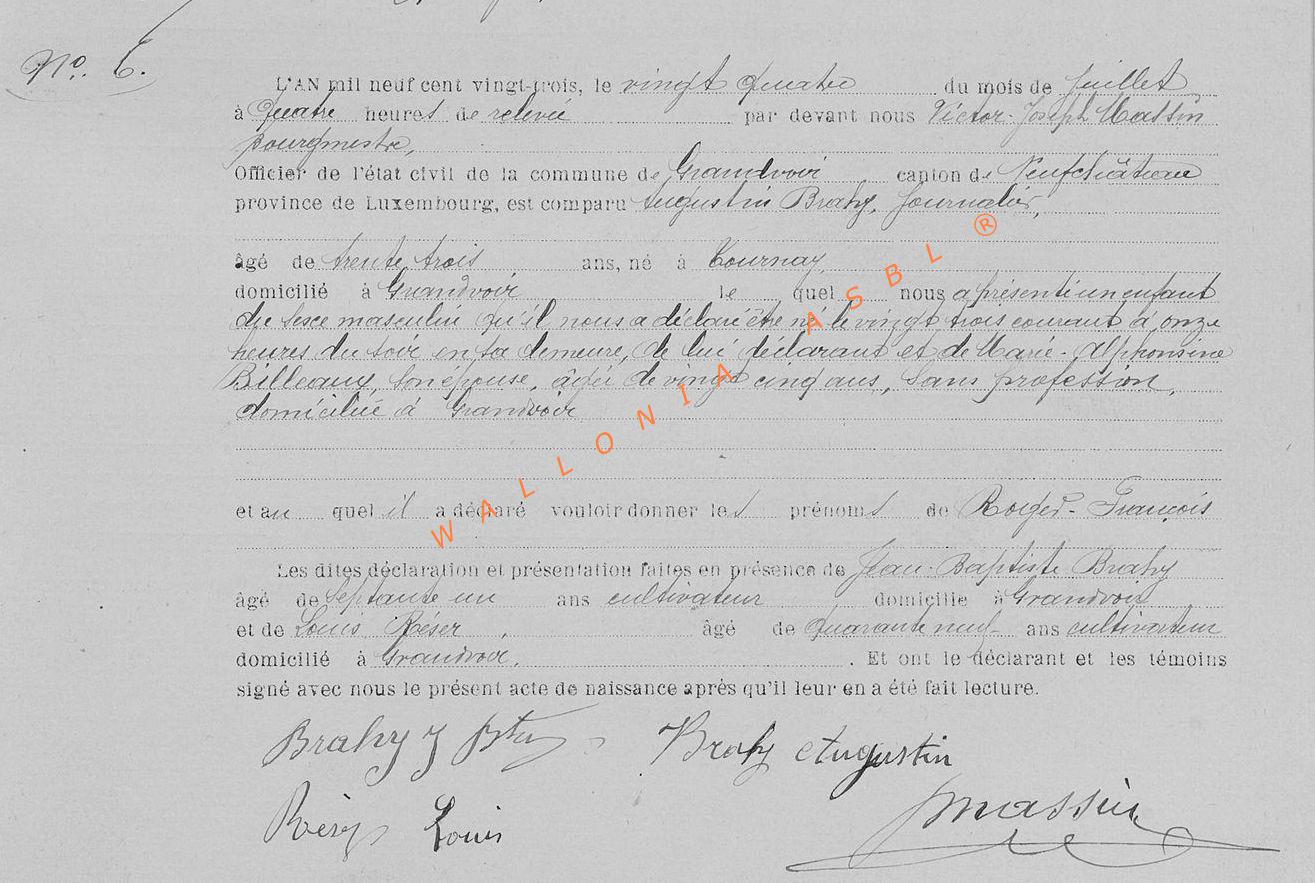 No. 6.
L'AN mil neuf cent vingt-trois, le vingt quatre du mois de Juillet
à Quatre heures de relevée par devant nous Victor-Joseph Massin
bourgmestre,
Officier de l'état civil de la commune de Grandvoir canton de Neufchâteau
province de Luxembourg, est comparu Augustin Brahy, Journalier,
âgé de trente trois ans, né à Tournay,
domicilié à Grandvoir le quel nous a présenté un enfant
du sexe masculin qu'il nous a déclaré être né le vingt trois courant à onze
heures du soir en sa demeure, de lui déclarant et de Marie-Alphonsine
Billeaux, son épouse, âgée de vingt cinq ans, sans profession,
domiciliée à Grandvoir
et au quel il a déclaré vouloir donner les prénoms de Roger-François
Les dites déclaration et présentation faites en présence de Jean-Baptiste Brahy
âgé de septante un ans cultivateur domicilié à Grandvoir
et de Louis âgé de Quarante neuf ans cultivateur
domicilié à Grandvoir. Et ont le déclarant et les témoins
signé avec nous le présent acte de naissance après qu'il leur en a été fait lecture.
Brahy J Bte Brahy Augustin
Louis Massin
WALLONIA ASBL ®